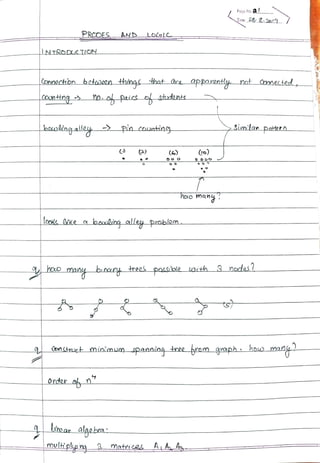 Page No. 01
PROOFS AND LOGIC
INTRODUCTION
Connection between things that are apparently not connected.
Counting → no. of pairs of students
bowling alley → pin counting
Similar pattern
(1) (3) (6) (10)
how many?
looks like a bowling alley problem.
q how many binary trees possible with 3 nodes?
(5)
q construct minimum spanning tree from graph. how many?
Order of n⁴
q linear algebra:
multiplying 3 matrices A₁ A₂ A₃.